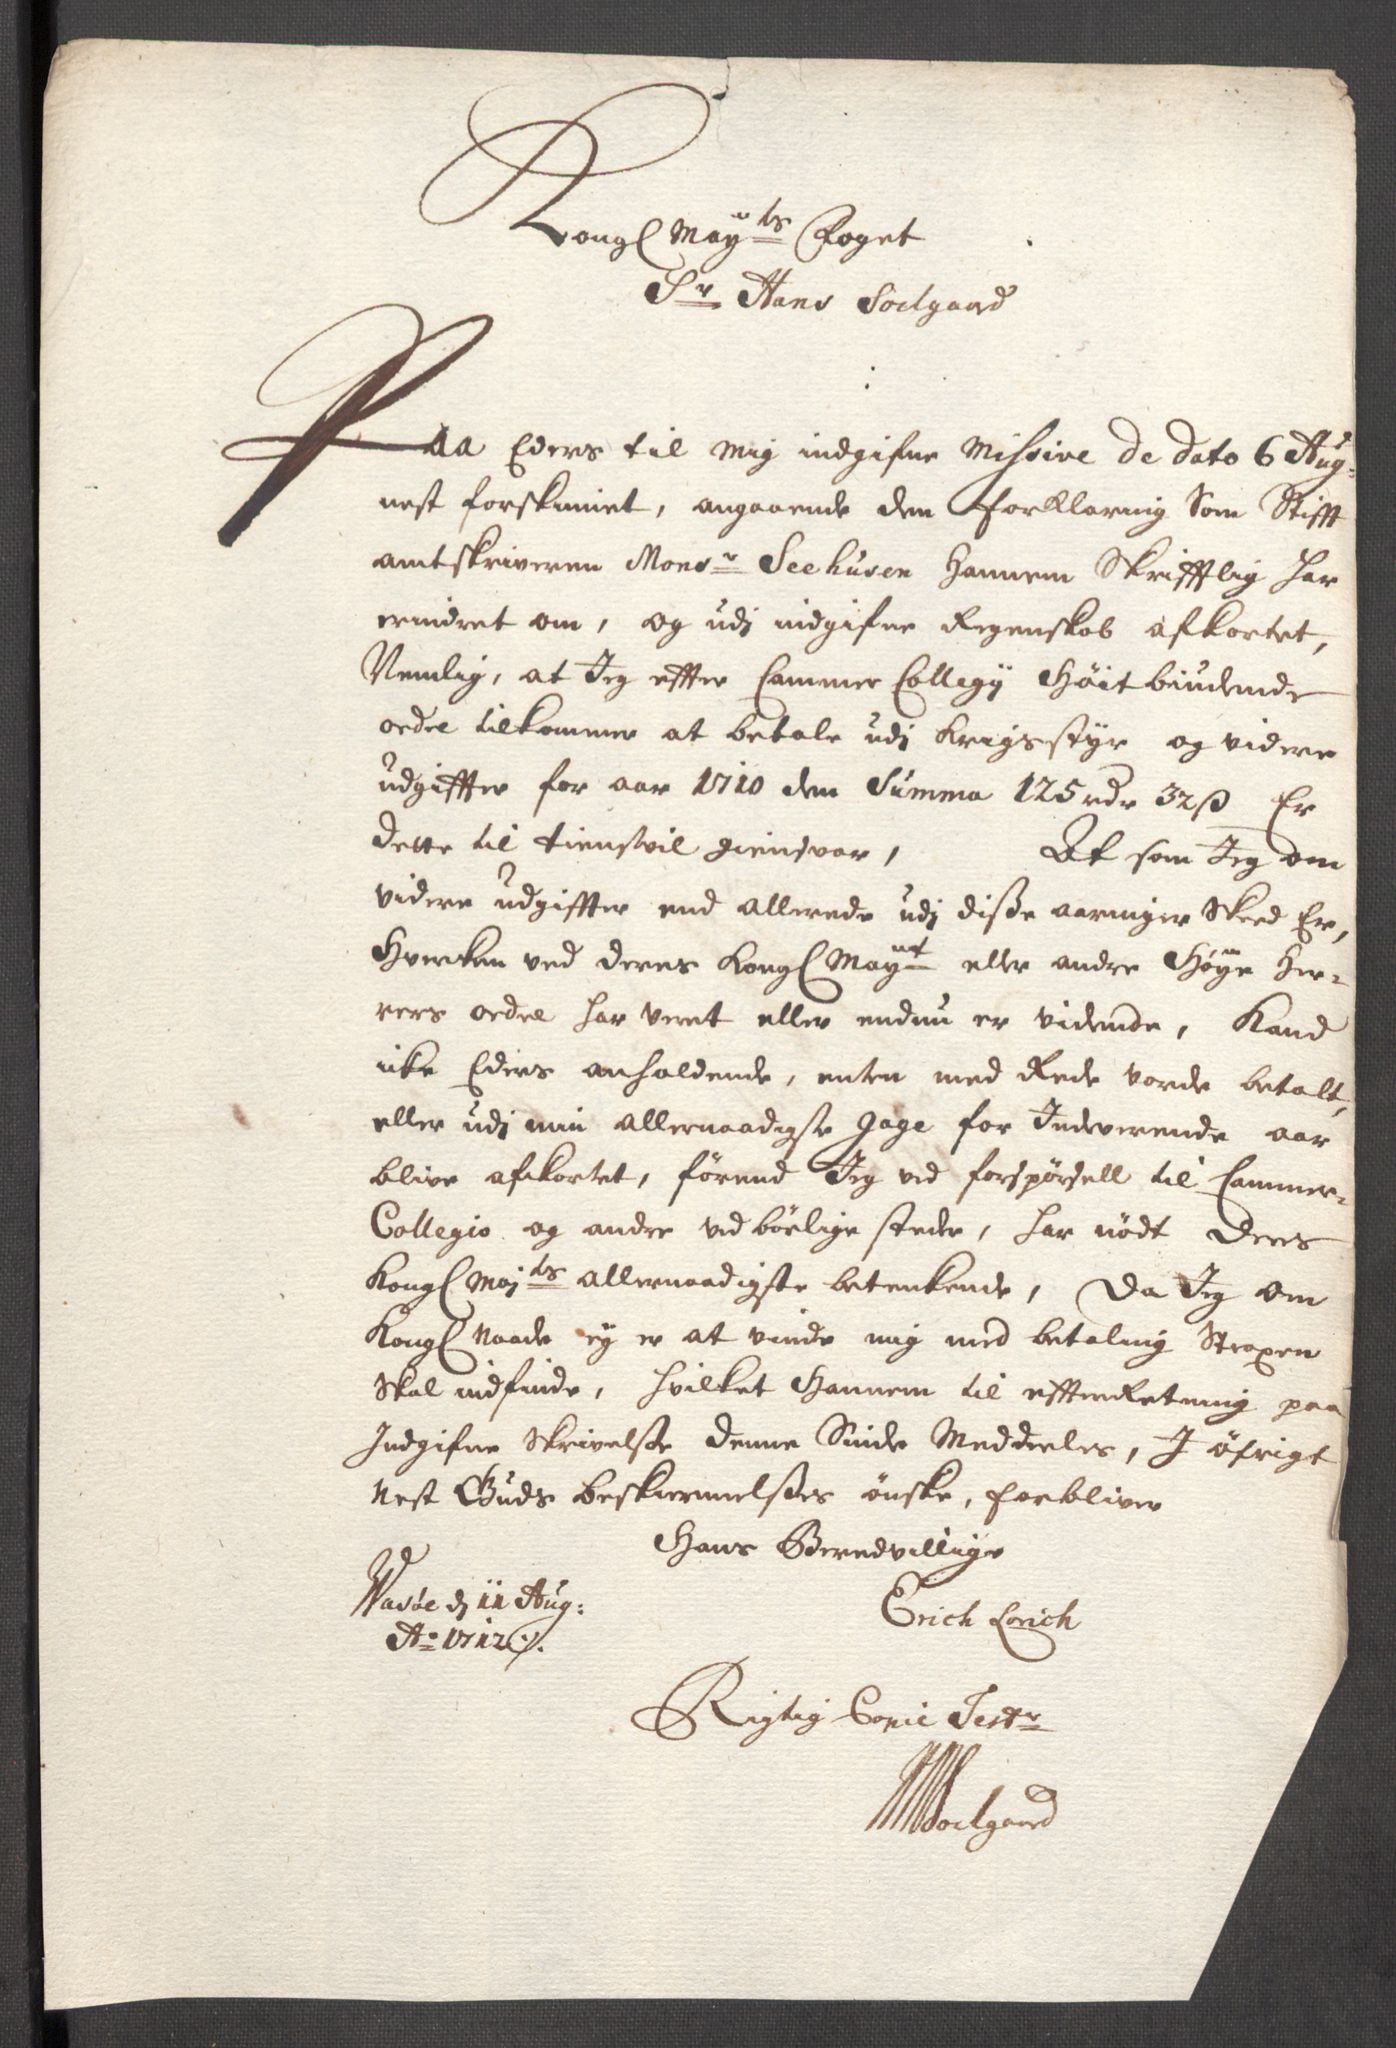 Kongl May:ts Foget
Sr Hans Soelgaard
Paa Eders til mig indgifne Missive de dato 6 Aug:
nest forskinnet, angaaende den forklaring Som Stifft
amtskriveren Monsr Seehusen hannem Skrifftlig har
erindret om, og udj indgifne Regenskob afkortet,
Nemlig, at Jeg effter Cammer Collegij Høit biudende
ordre tilkommer at betale udj krigsstyr og videre
udgiffter for aar 1710 den Summa 125 rdr 32 ß Er
dette til tienstvil giensvar, At som Jeg om
videre udgiffter end allerede udj diße aaringer Skeed Er,
Hverken ved deres Kongl May:tt eller andre Høye Her-
rers ordre har veret eller endnu er vidende, Kand
icke Eders anholdende, enten med Rede vorde betalt,
eller udj min allernaadigste gage for Indeverende aar
blive afkortet, førend Jeg ved forspørsell til Cammer-
Collegio og andre vedbørlige steder, har nødt Deres
Kongl May:ts allernaadigste betenkende, Da Jeg om
Kongl Naade ey er at vinde mig med betaling Straxen
Skal indfinde, hvilket Hannem til effterRetning paa
Indgifne Skrivelße denne Sinde Meddeeles, J øfrigt
Nest Guds beskiermelßes ønske, forbliver
Hans Beredvillige
Vasøe dj 11 Aug:
Erich Lorich
Ao 1712
Rigtig Copie Test:r
HSoelgaard